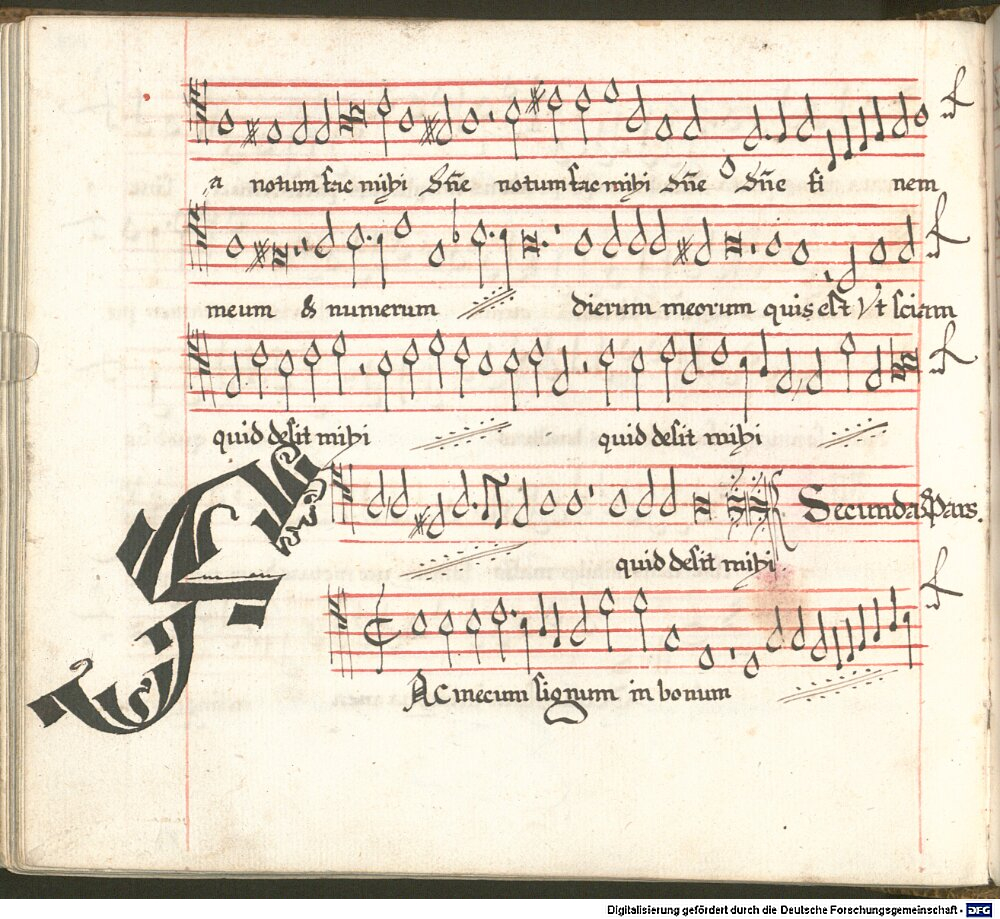 a notum fac mihi dn̄e notum fac mihi dn̄e dn̄e fi nem
meum & numerum dierum meorum quis est Vt sciam
quid desit mihi quid desit mihi
quid desit mihi
Secunda Pars.
FAC mecum signum in bonum
Digitalisierung gefördert durch die Deutsche Forschungsgemeinschaft - DFG